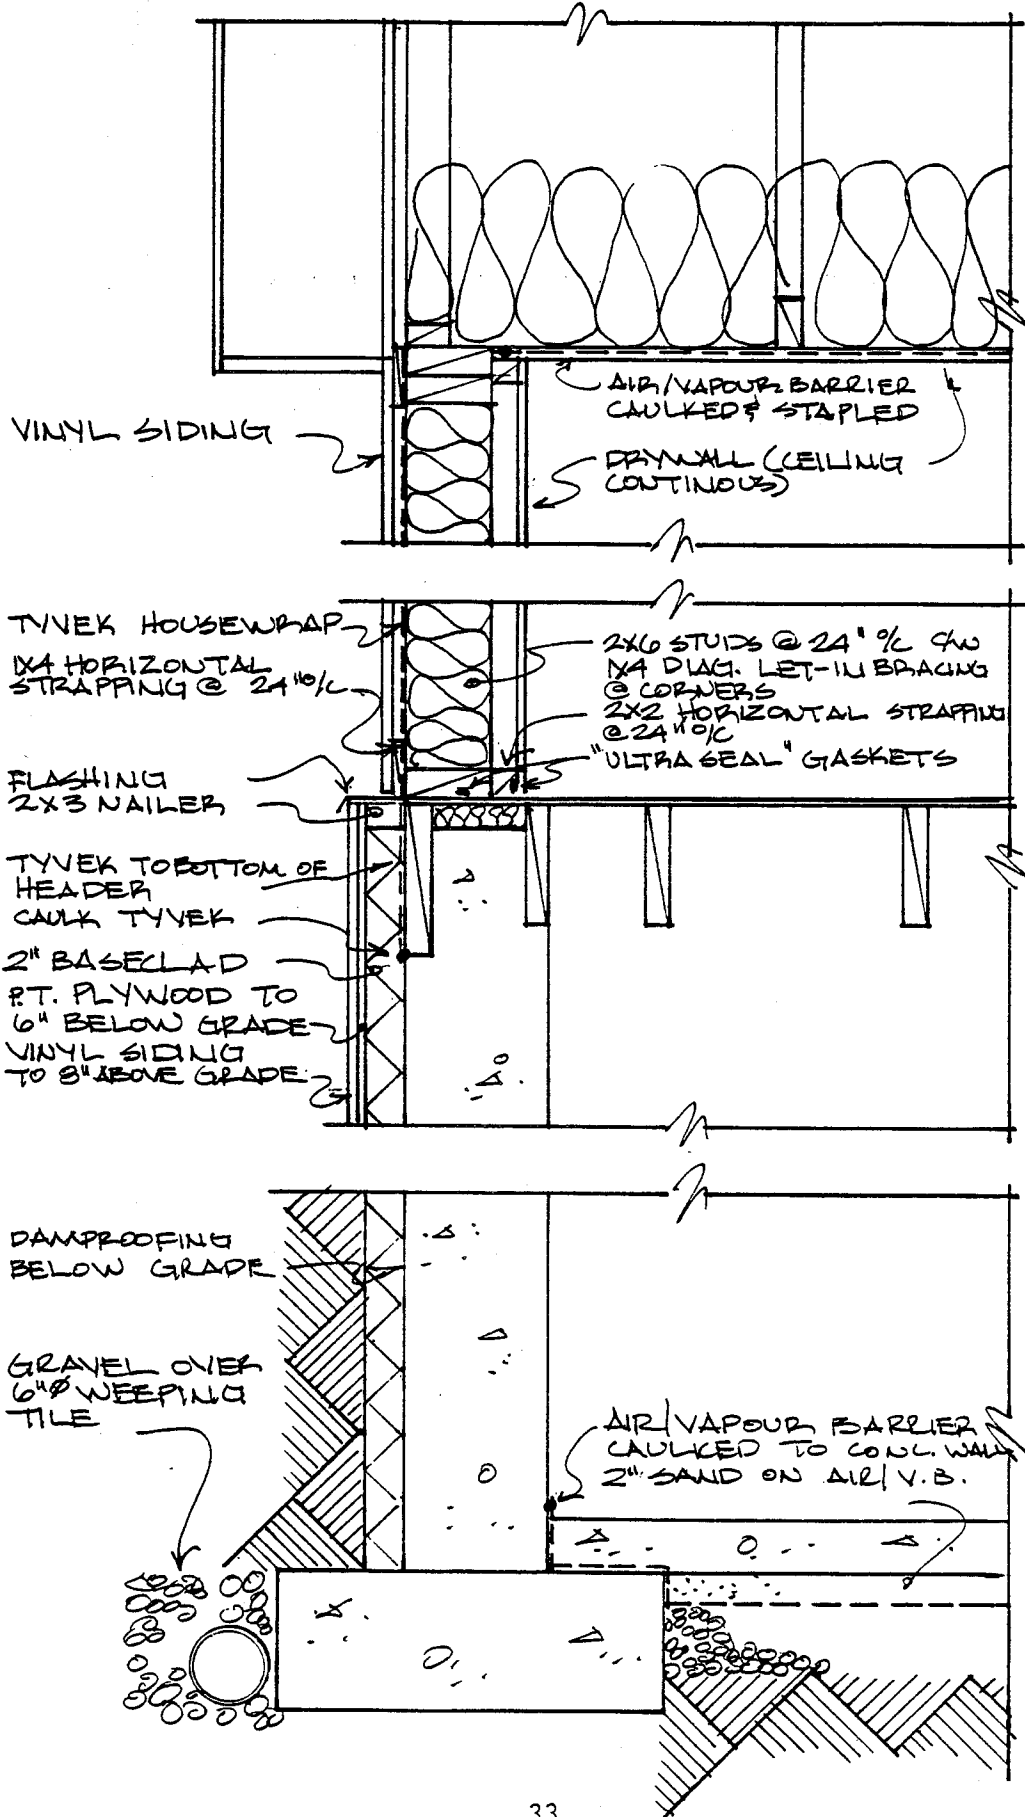 AIR/VAPOUR BARRIER
CAULKED & STAPLED
VINYL SIDING
DRYWALL (CEILING
CONTINOUS)
TYVEK HOUSEWRAP
1X4 HORIZONTAL
STRAPPING @ 24" O/C
2X6 STUDS @ 24" O/C C/W
1X4 DIAG. LET-IN BRACING
@ CORNERS
2X2 HORIZONTAL STRAPPING
@ 24" O/C
"ULTRA SEAL" GASKETS
FLASHING
2X3 NAILER
TYVEK TO BOTTOM OF
HEADER
CAULK TYVEK
2" BASECLAD
P.T. PLYWOOD TO
6" BELOW GRADE
VINYL SIDING
TO 8" ABOVE GRADE
DAMPROOFING
BELOW GRADE
GRAVEL OVER
6"Ø WEEPING
TILE
AIR/VAPOUR BARRIER
CAULKED TO CONC. WALL
2" SAND ON AIR/V.B.
33